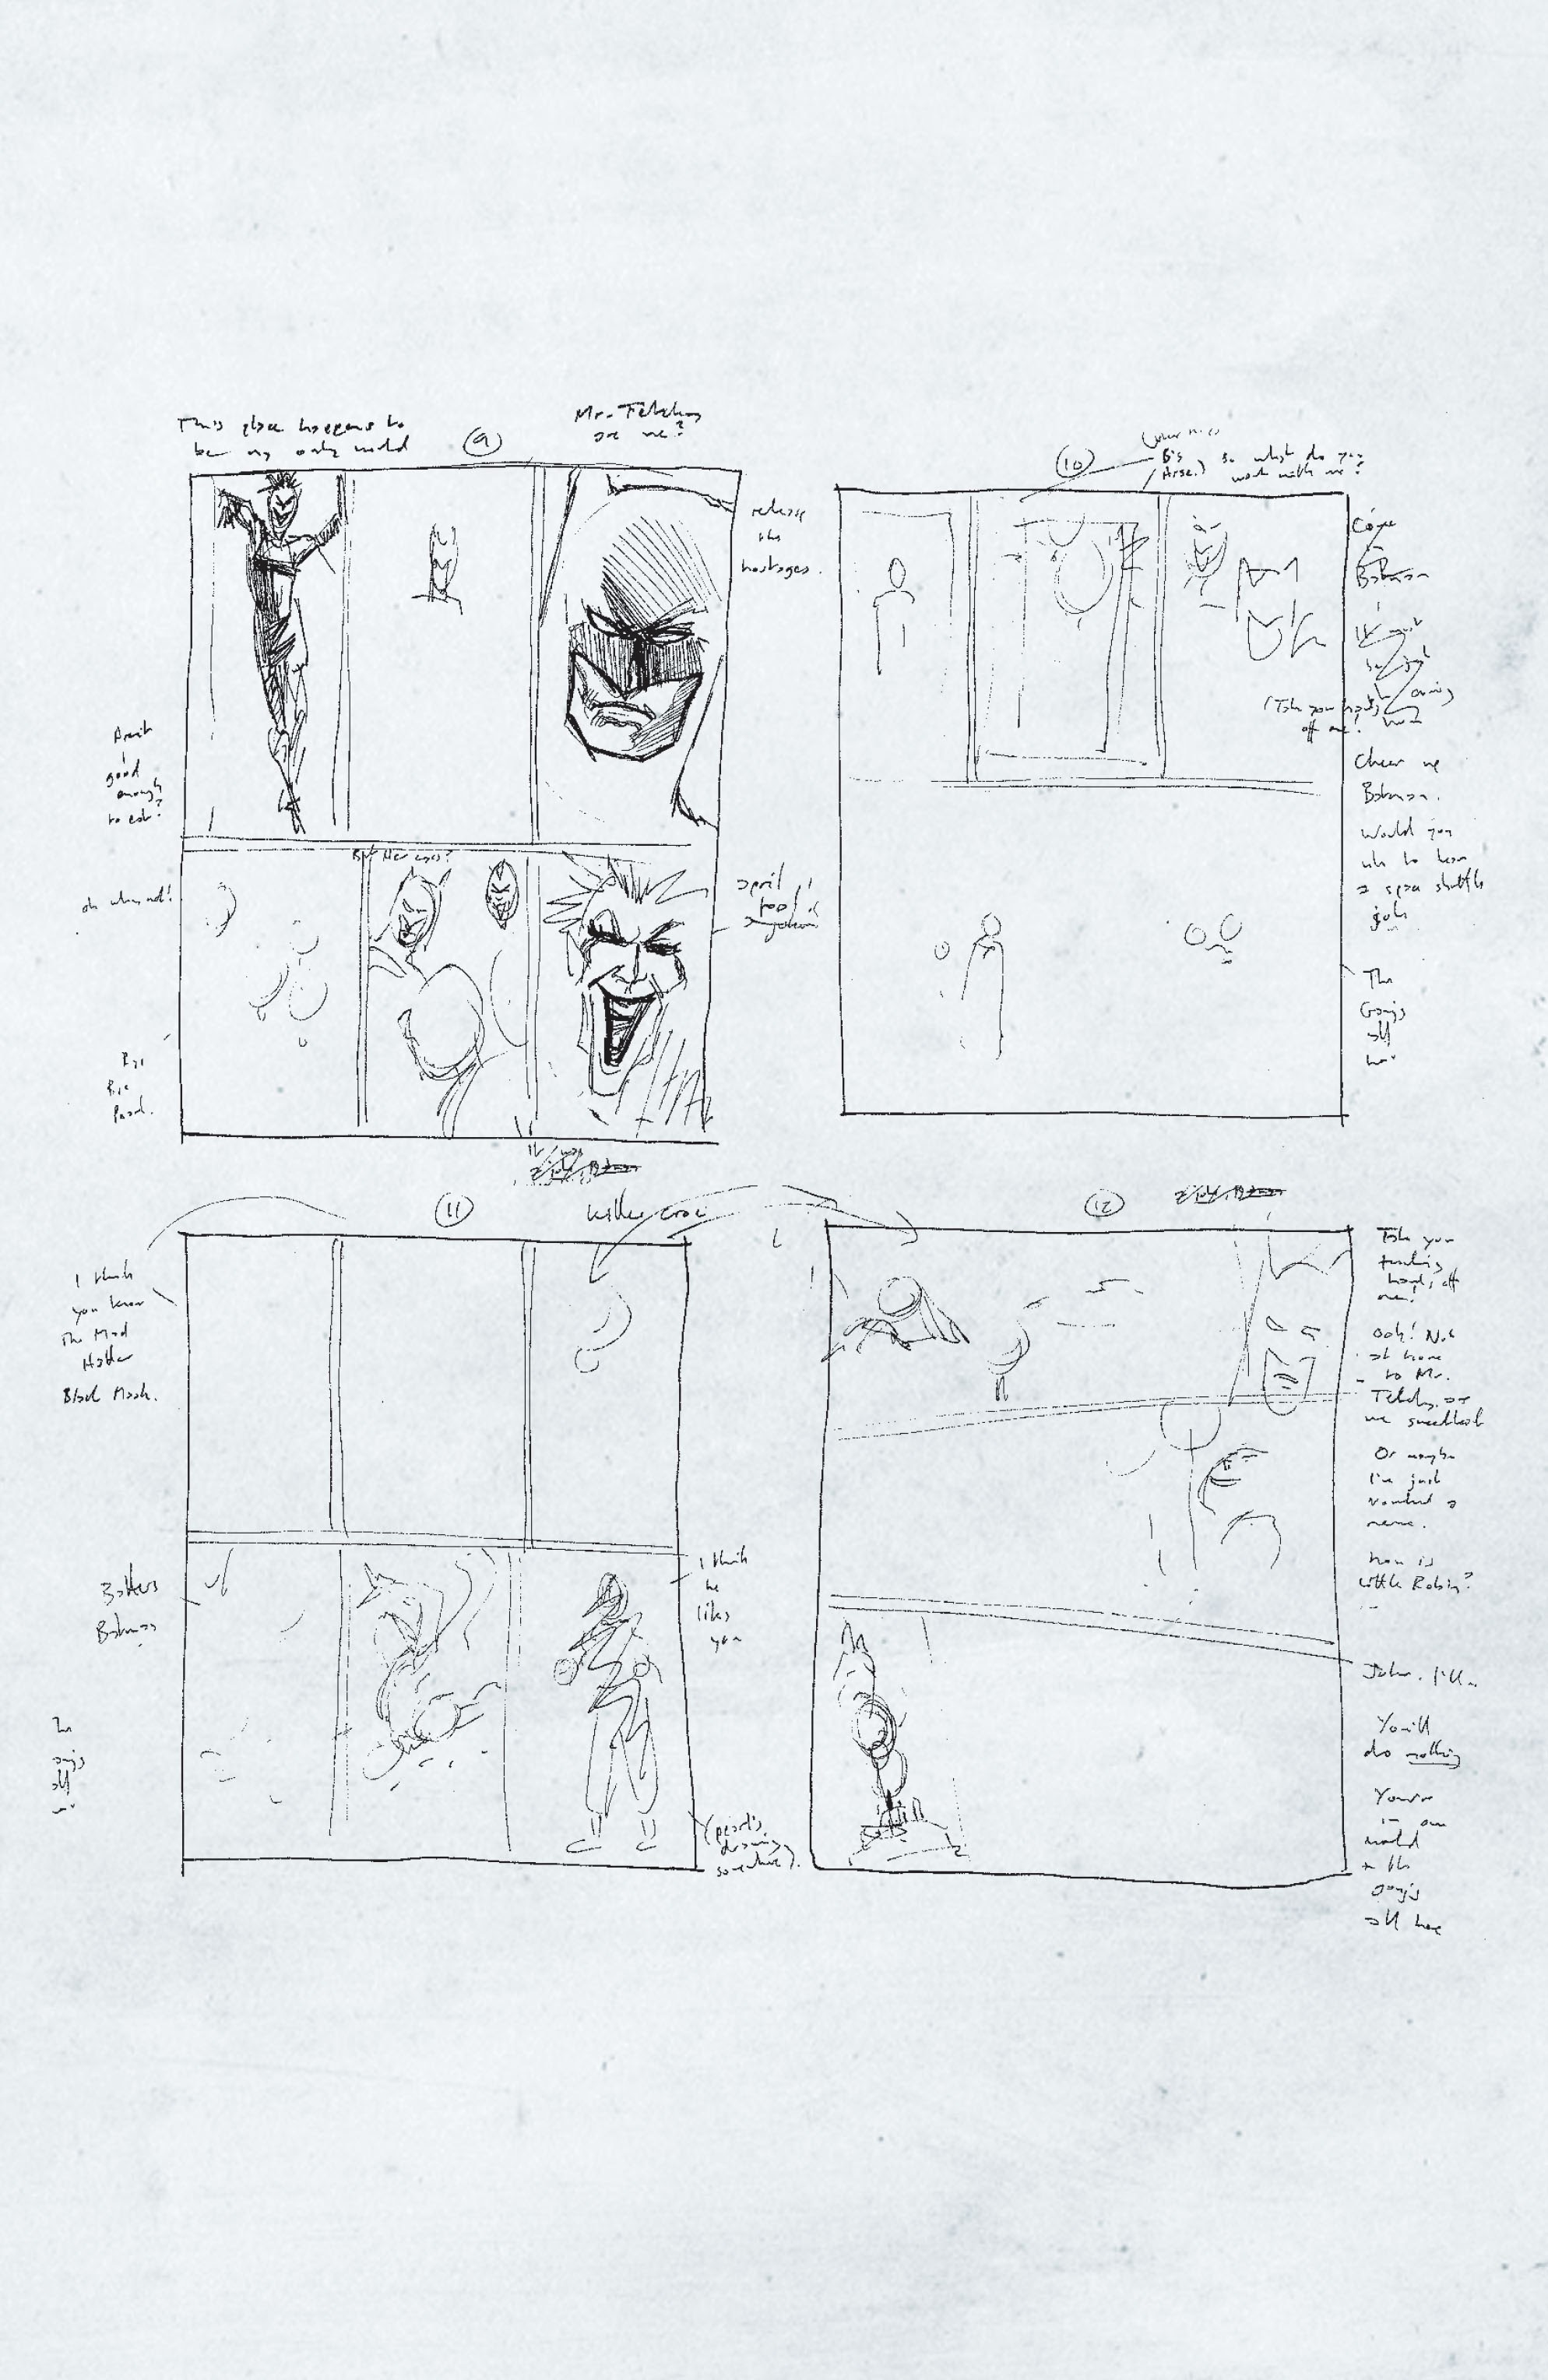 This place happens to
be my only world
9
Mr. Tetchy
are we?
release
the
hostages.
Aren't
I
good
enough
to eat?
oh why not!
But Her eyes?
april
fool
Bye
Bye
Pearl.
10
so what do you
want with me?
Batman
(Take your hands
off me!
Cheer up
Batman.
Would you
like to hear
a space shuttle
joke
The
Gang's
all
here
11
Killer Croc
I think
you know
The Mad
Hatter
Black Mask.
Batman
I think
he
likes
you
The
gang's
all
here
(pearl's
drawing
somewhere).
12
Take your
hands off
me!
Ooh! Not
at home
to Mr.
Tetchy are
we sweetheart
Or maybe
I've just
touched a
nerve.
how is
little Robin?
Joker. I'll..
You'll
do nothing
You're
in our
world
the
gang's
all here